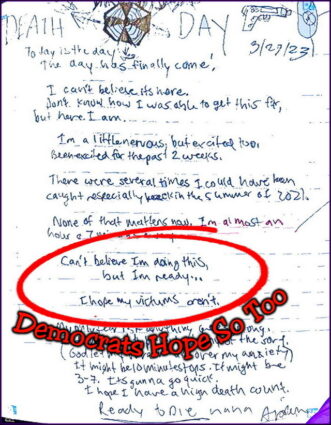 DEATH DAY
3/27/23
Today is the day
The day has finally come!
I can't believe its here.
Dont know how I was able to get this far,
but here I am.
I'm a little nervous, but excited too.
Been excited for the past 2 weeks.
There were several times I could have been
caught especially back in the summer of 2021.
None of that matters now. I'm almost an
hour & 7 minutes away.
Can't believe I'm doing this,
but I'm ready...
I hope my victims arent.
Democrats Hope So Too
My only fear is if anything goes wrong.
of the sort.
(God let my wrath over my anxiety)
It might be 10 minutes tops. It might be
3-7. Its gunna go quick.
I hope I have a high death count.
Ready to Die haha Aiden